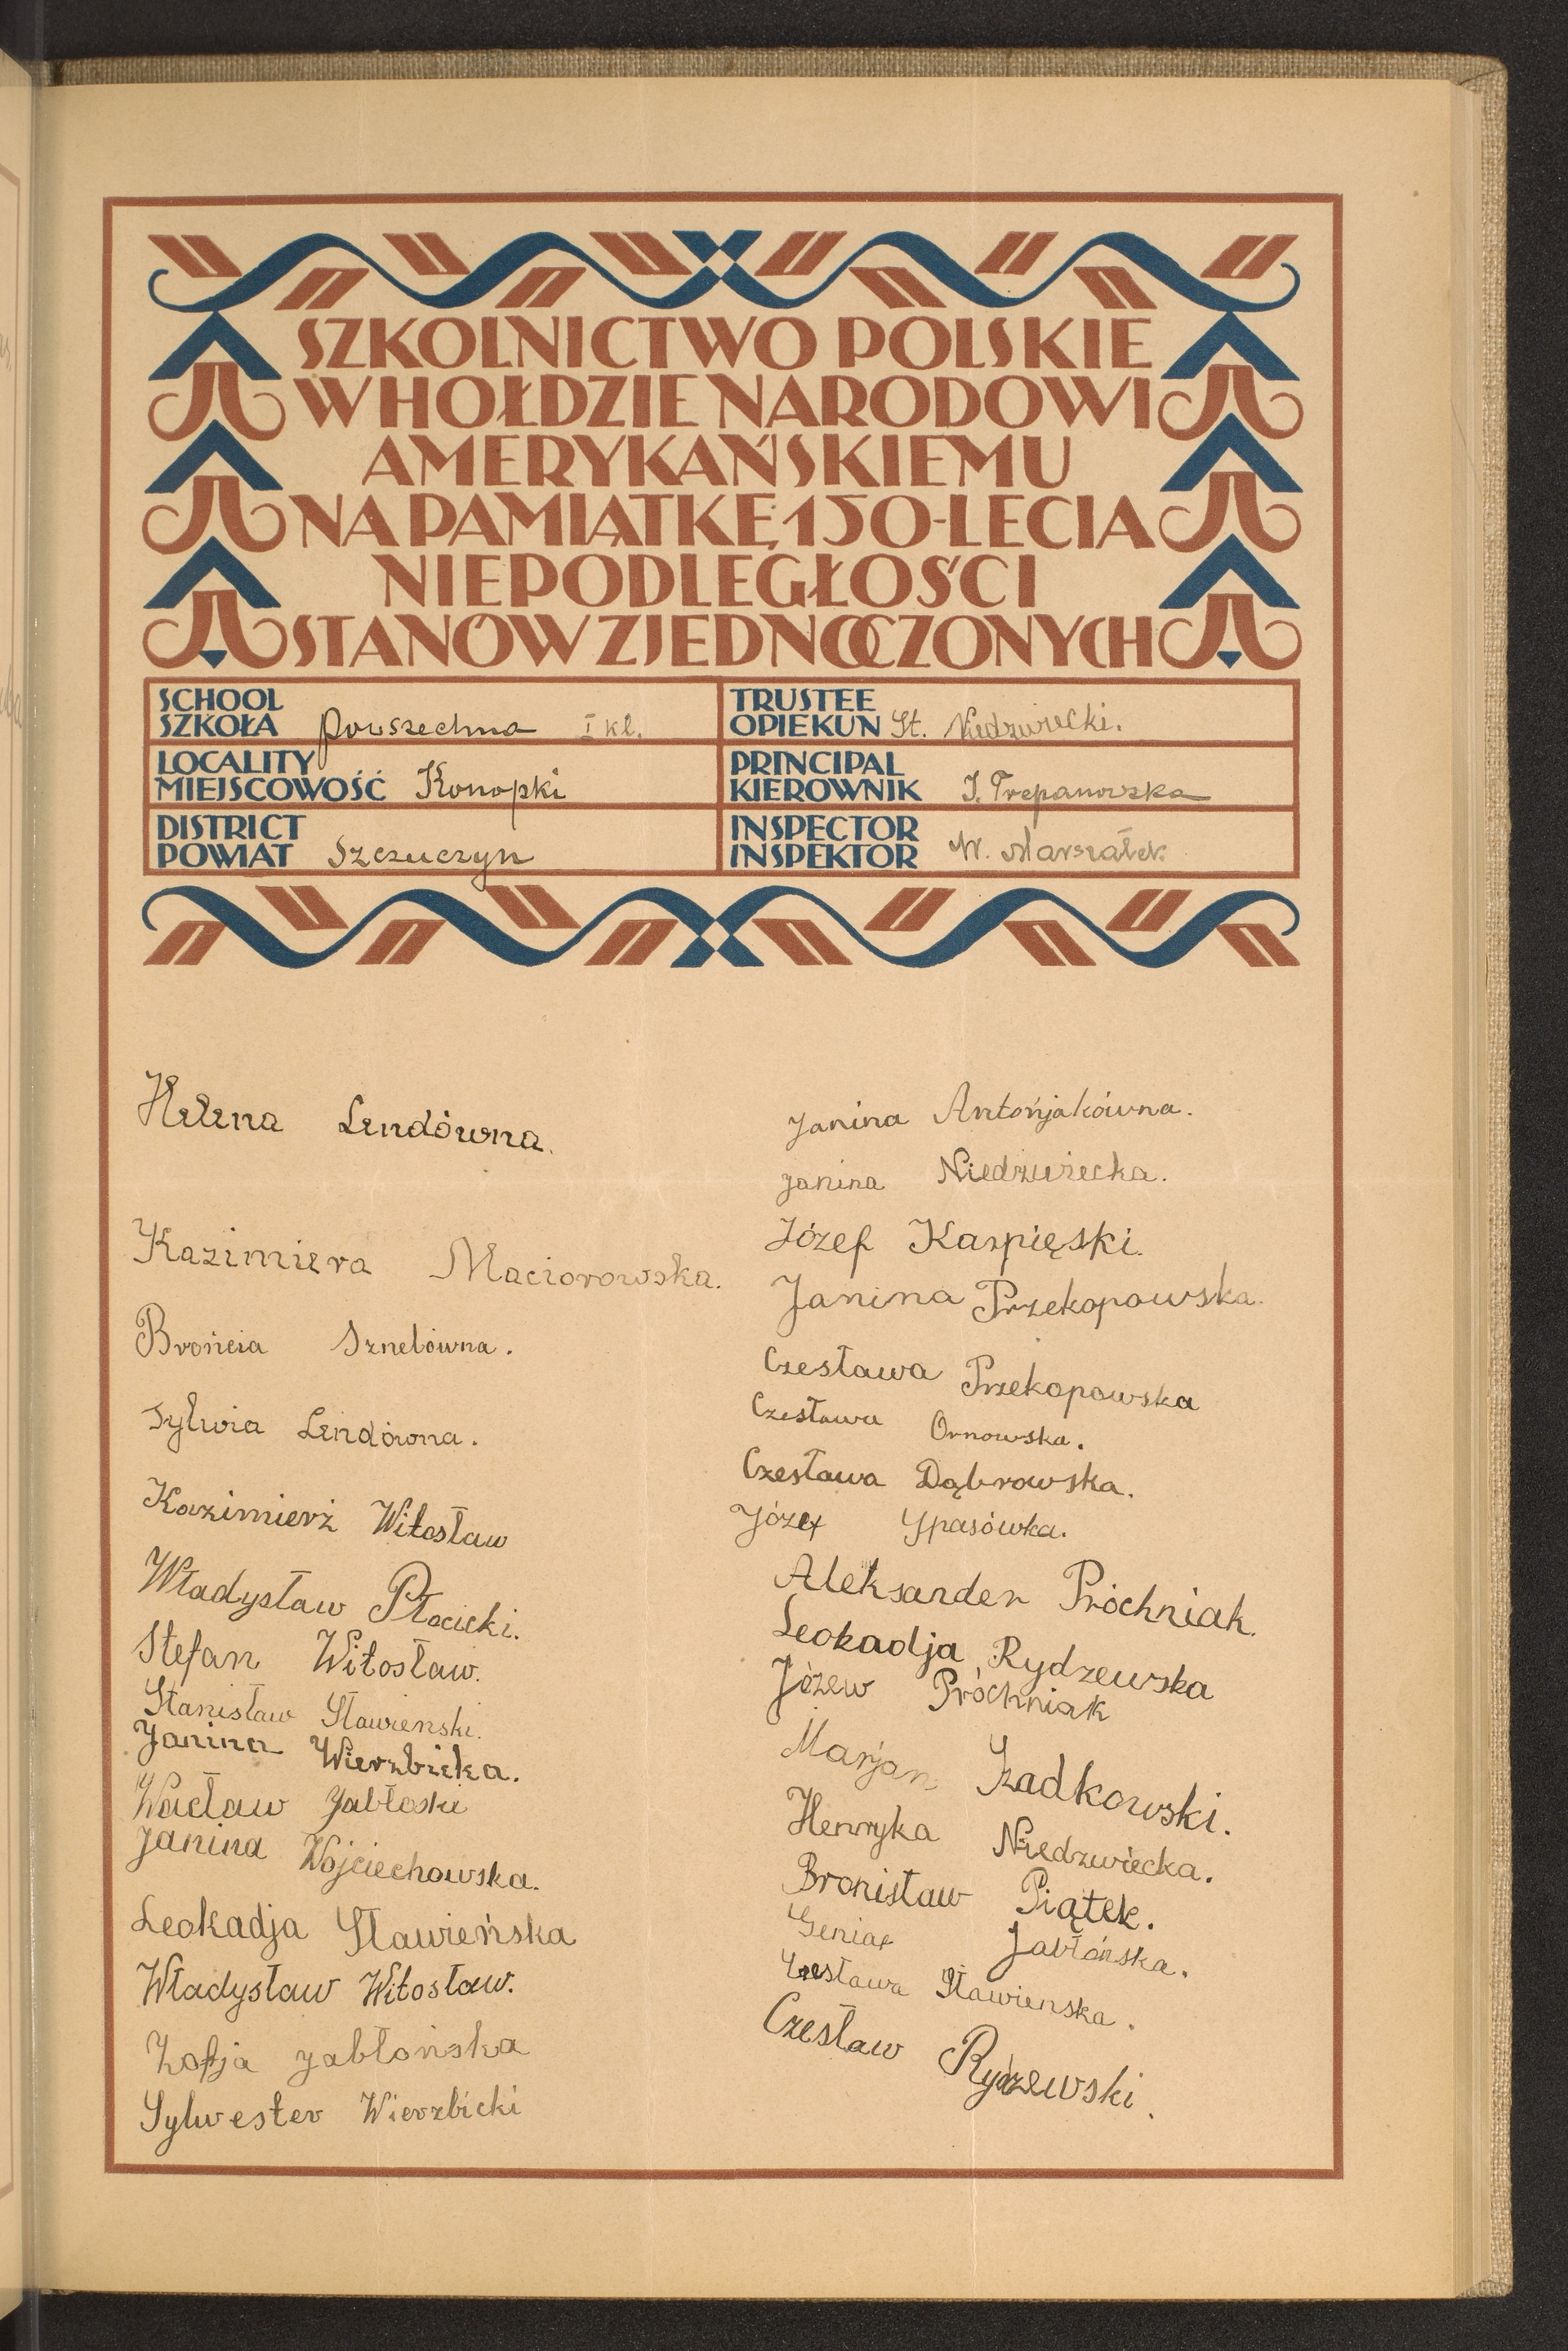 SZKOLNICTWO POLSKIE
W HOŁDZIE NARODOWI
AMERYKAŃSKIEMU
NA PAMIĄTKĘ 150-LECIA
NIEPODLEGŁOŚCI
STANÓW ZJEDNOCZONYCH
SCHOOL
SZKOŁA powszechna I kl.
LOCALITY
MIEJSCOWOŚĆ Konopki
DISTRICT
POWIAT Szczuczyn
TRUSTEE
OPIEKUN St. Niedzwiecki.
PRINCIPAL
KIEROWNIK J. Trepanowska
INSPECTOR
INSPEKTOR W. Marszałek
Helena Lendówna.
Kazimiera Maciorowska.
Brońcia Sznelówna.
Sylwia Lendówna.
Kazimierz Witosław
Władysław Płocicki.
Stefan Witosław.
Stanisław Sławienski.
Janina Wierzbicka.
Wacław Jabłoski
Janina Wojciechowska.
Leokadja Sławieńska
Władysław Witosław.
Zofja Jabłońska
Sylwester Wierzbicki
Janina Antońjakówna.
Janina Niedzwiecka.
Józef Karpięski.
Janina Przekopowska.
Czesława Przekopowska
Czesława Ornowska.
Czesława Dąbrowska.
Józef
Aleksander Próchniak.
Leokadja Rydzewska
Józew Próchniak
Marjan
Henryka Niedzwiecka.
Bronisław Piątek.
Genia Jabłońska.
Czesława Sławienska.
Czesław Rydzewski.